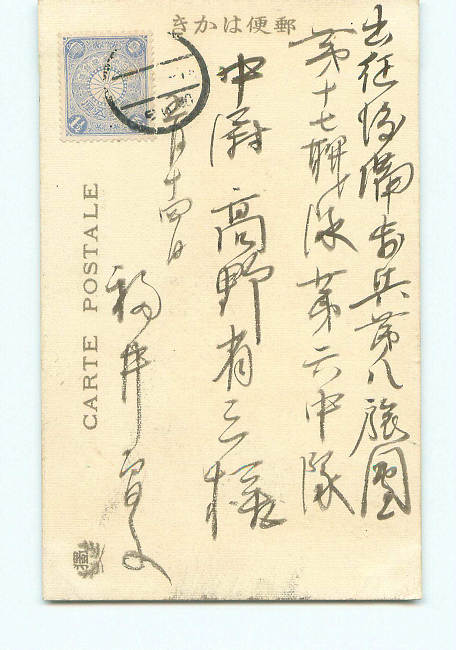 郵便はかき
出征後備歩兵第八旅團
第十七聯隊第六中隊
中尉 高野有三様
月十四日
福井
CARTE POSTALE
1½